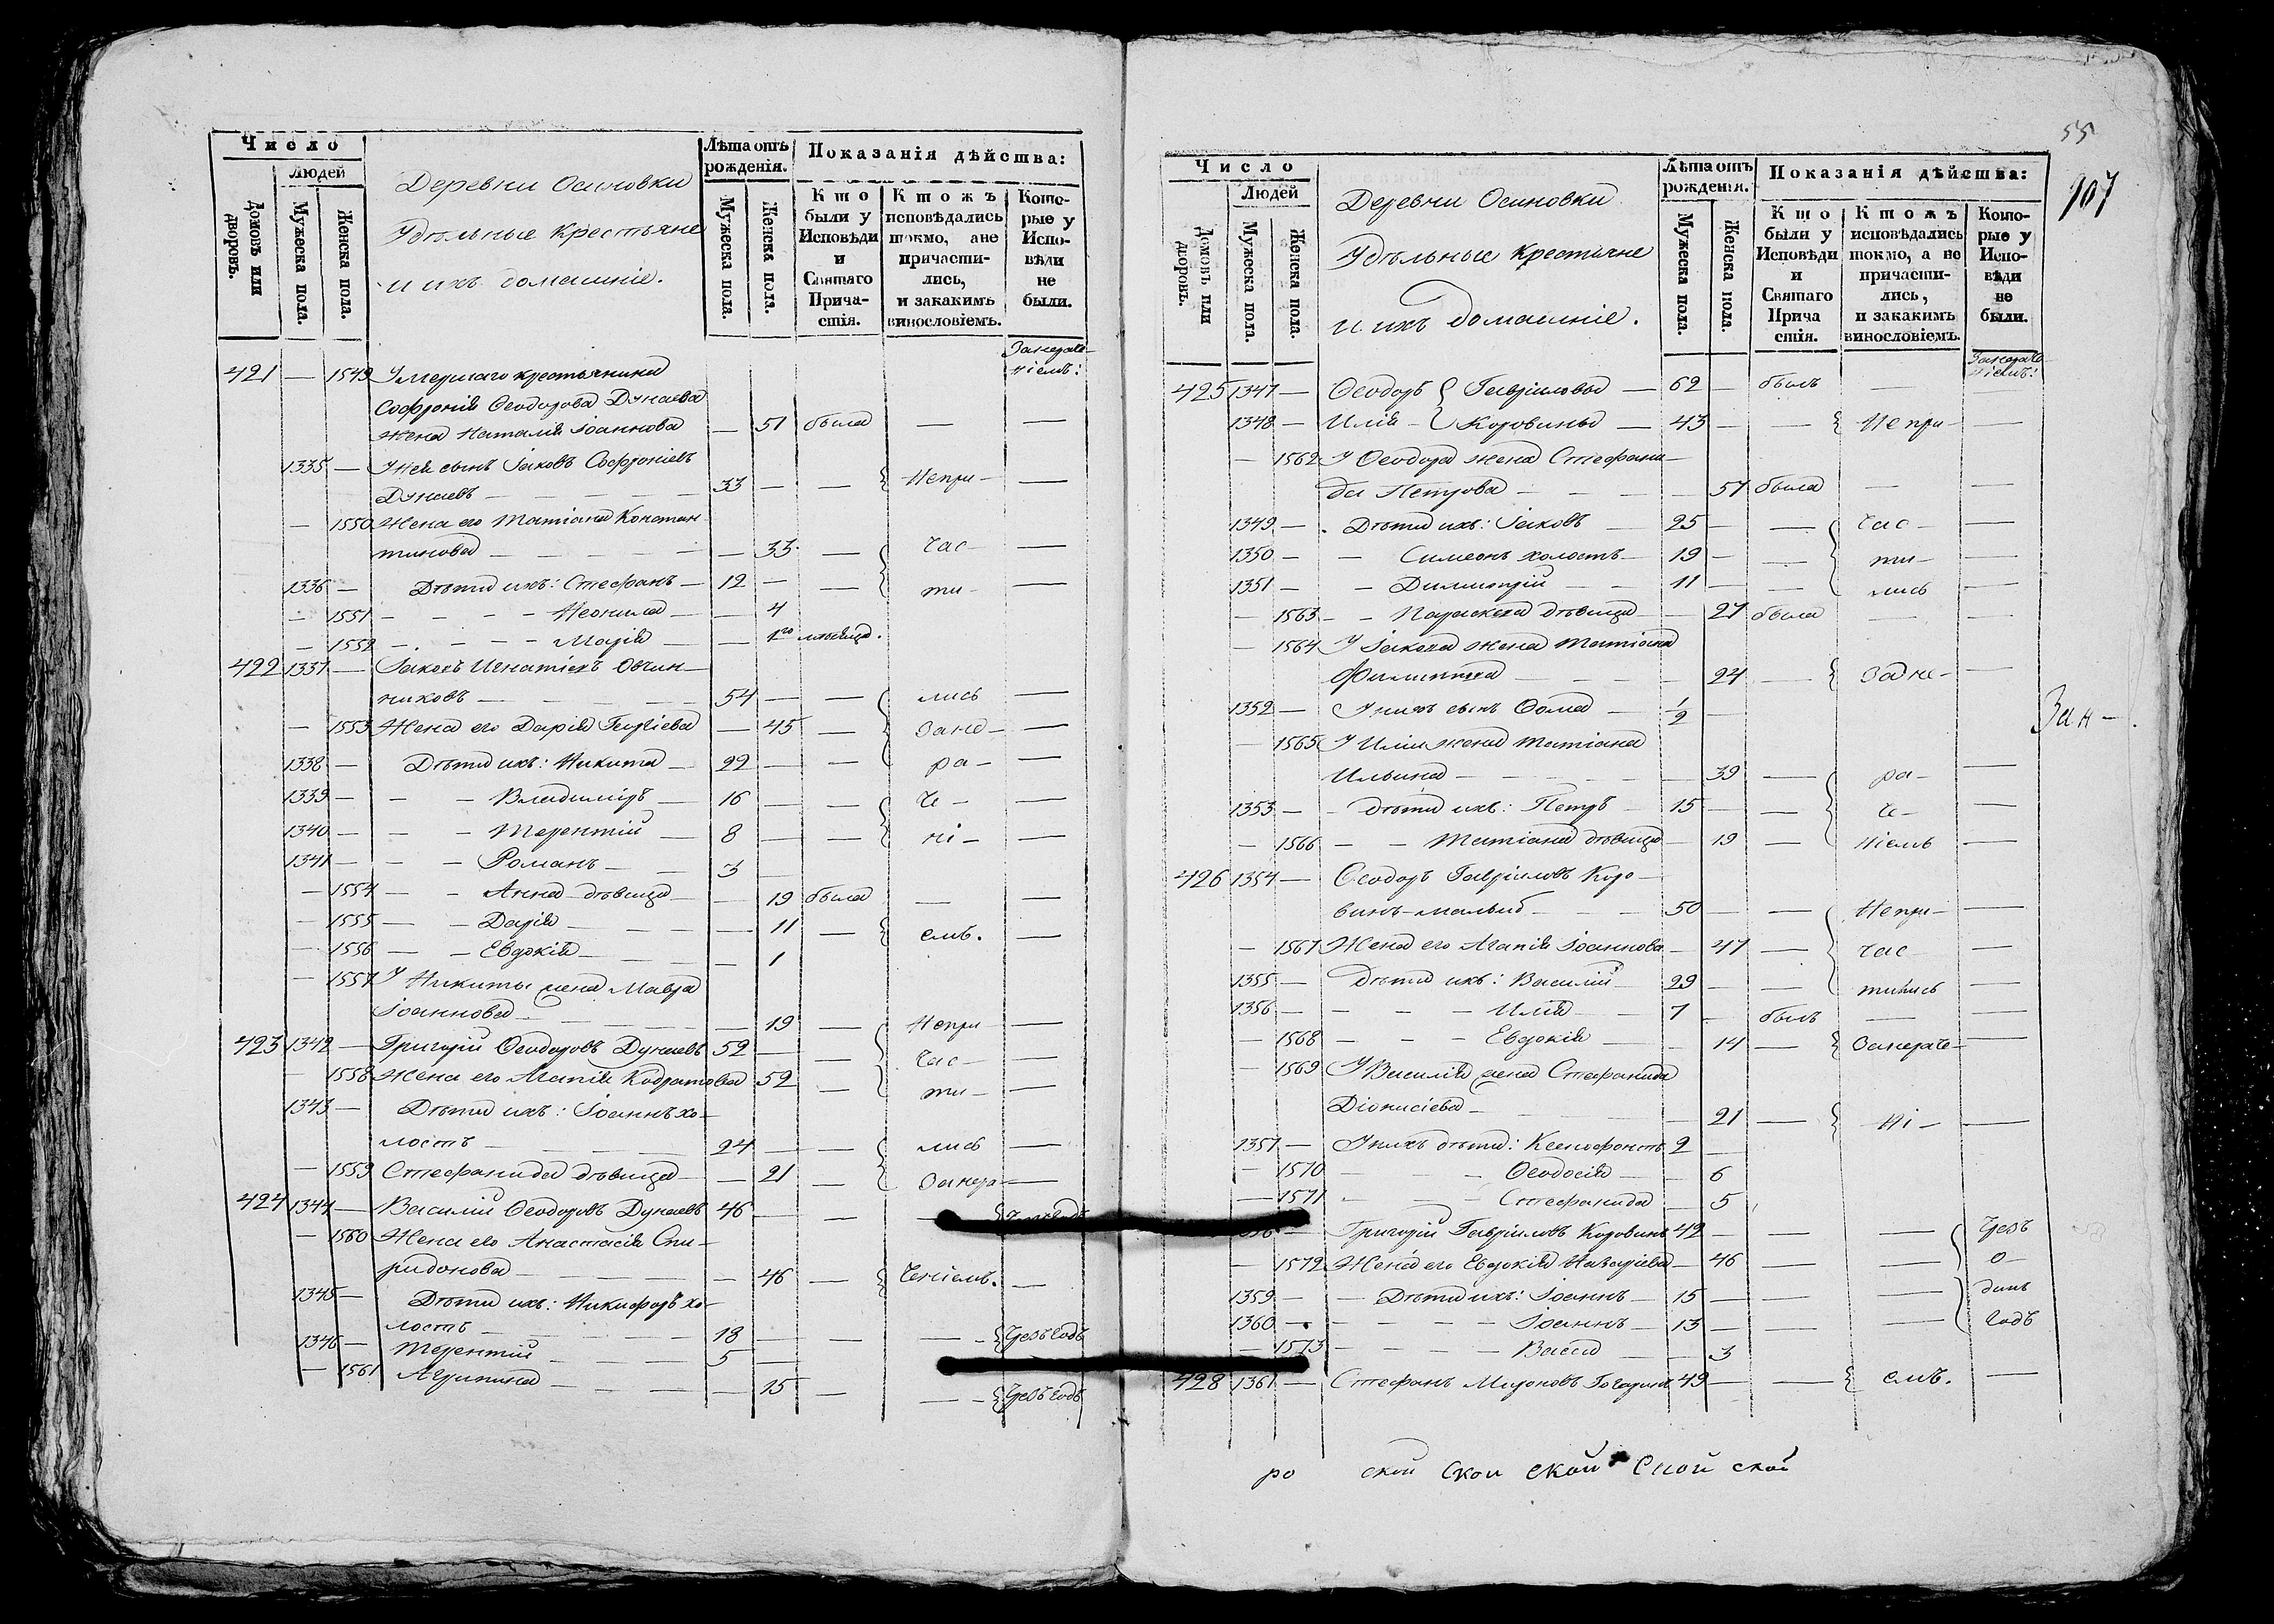 Число
Людей
Домовъ или дворовъ.
Мужеска пола.
Женска пола.
Деревни Осиновки
Удѣльные крестьяне
и ихъ домашніе.
Лѣта отъ рожденія.
Мужеска пола.
Женска пола.
Показанія дѣйства:
Кто были у Исповѣди и Святаго Прича-стія.
Ктожъ исповѣдались токмо, ане причасти-лись, и закакимъ винословіемъ.
Кото-рые у Испо-вѣди не были.
Занераче-
ніемъ:
421 — 1549 Умершаго крестьянина
Софронія Ѳеодорова Дунаева
жена Наталія Іоаннова — 51 была — —
1335 — У нея сынъ Іаковъ Софроніевъ
Дунаевъ — 33 — — Непри- —
— 1550 Жена его Татіана Констан-
тинова — — 33 — Час- —
1336 — Дѣти ихъ: Стефанъ — 12 — — ти- —
— 1551 — Неонила — — 4
— 1552 — Марія — — 1го мѣсяца.
422 1337 — Іаковъ Игнатіевъ Овчин-
никовъ — 54 — — лись —
— 1553 Жена его Дарія Георгіева — 45 — Зане- —
1338 — Дѣти ихъ: Никита — 22 — — ра- —
1339 — — Владиміръ — 16 — — че- —
1340 — — Терентій — 8 — — ні- —
1341 — — Романъ — 3 —
— 1554 — Анна дѣвица — — 19 была — —
— 1555 — Дарія — — 11 — емъ. —
— 1556 — Евдокія — — 1
— 1557 У Никиты жена Мавра
Іоаннова — — 19 — Непри- —
423 1342 — Григорій Ѳеодоровъ Дунаевъ 52 — — Час- —
— 1558 Жена его Агапія Кодратова 52 — ти- —
1343 — Дѣти ихъ: Іоаннъ хо-
лостъ — 24 — — лись —
— 1559 Стефанида дѣвица — — 21 — Занера- —
424 1344 — Василій Ѳеодоровъ Дунаевъ 46 — — —
— 1560 Жена его Анастасія Спи-
ридонова — — 46 — Ченіемъ. —
1345 — Дѣти ихъ: Никифоръ хо-
лостъ — 18 — — — Чрезъ годъ
1346 — Терентій — 5 —
— 1561 Агрипина — — 15 — — Чрезъ годъ
55
907
Число
Людей
Домовъ или дворовъ.
Мужеска пола.
Женска пола.
Деревни Осиновки
Удѣльные крестьяне
и ихъ домашніе.
Лѣта отъ рожденія.
Мужеска пола.
Женска пола.
Показанія дѣйства:
Кто были у Исповѣди и Святаго Прича стія.
Ктожъ исповѣдались токмо, а не причасти-лись, и закакимъ винословіемъ.
Кото-рые у Испо-вѣди не были.
Занераче-
ніемъ:
425 1347 — Ѳеодоръ { Гавріиловы — 62 — былъ —
1348 — Илія { Коровины — 43 — — Непри- —
— 1562 У Ѳеодора жена Стефани-
да Петрова — — 57 была — —
1349 — Дѣти ихъ: Іаковъ — 25 — — Час- —
1350 — — Симеонъ холостъ — 19 — — ти- —
1351 — — Димитрій — 11 — — лись —
— 1563 — Параскева дѣвица — 27 была — —
— 1564 У Іакова жена Татіана
Филиппова — — 24 — Зане- —
1352 — У нихъ сынъ Ѳома — 1/2 —
Зан-
— 1565 У Иліи жена Татіана
Ильина — — 39 — ра- —
1353 — Дѣти ихъ: Петръ — 15 — — че- —
— 1566 — Татіана дѣвица — 19 — ніемъ —
426 1354 — Ѳеодоръ Гавріиловъ Коро-
винъ-малый — 50 — — Непри- —
— 1567 Жена его Агапія Іоаннова — 47 — Час- —
1355 — Дѣти ихъ: Василій — 29 — — тились —
1356 — — Илія — 7 — былъ — —
— 1568 — Евдокія — — 14 — Занераче- —
— 1569 У Василія жена Стефанида
Діонисіева — — 21 — ні- —
1357 — У нихъ дѣти: Ксенофонтъ 2 —
— 1570 — Ѳеодосія — 6
— 1571 — Стефанида — 5
— Григорій Гавріиловъ Коровинъ 42 — — — Чрезъ
— 1572 Жена его Евдокія Назаріева — 46 — — о-
1359 — Дѣти ихъ: Іоаннъ — 15 — — — динъ
1360 — — Іоаннъ — 13 — — — годъ
— 1573 — Васса — — 3
428 1361 — Стефанъ Мироновъ 49 — — емъ. —
ро ской ской ской ской ской